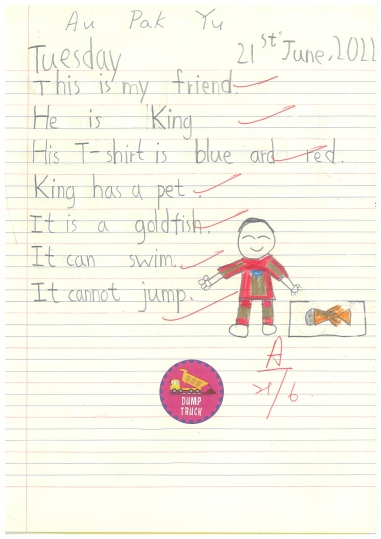 Au Pak Yu
Tuesday 21st June, 2022
This is my friend.
He is King
His T-shirt is blue and red.
King has a pet.
It is a goldfish.
It can swim.
It cannot jump.
A
21/6
DUMP
TRUCK